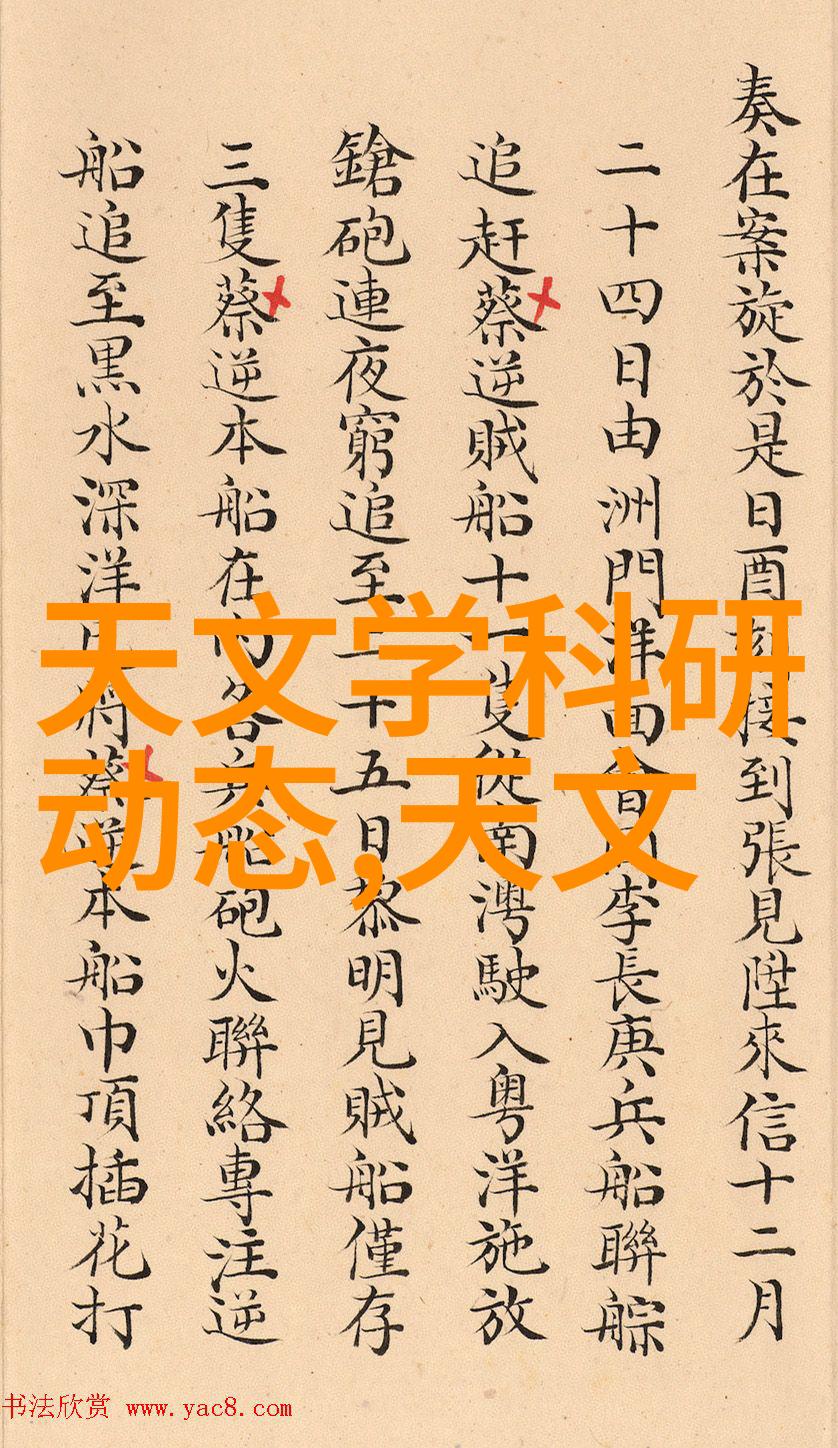 奏在案旋於是日酉刻接到張見陞來信十二月
二十四日由洲門洋面會同李長庚兵船聯䑸
追赶蔡逆賊船十一隻從南灣駛入粵洋施放
鎗砲連夜窮追至二十五日黎明見賊船僅存
三隻蔡逆本船在內各兵船砲火聯絡專注逆
船追至黒水深洋將蔡逆本船巾頂插花打
天文学科研
动态,天文
书法欣赏 www.yac8.com